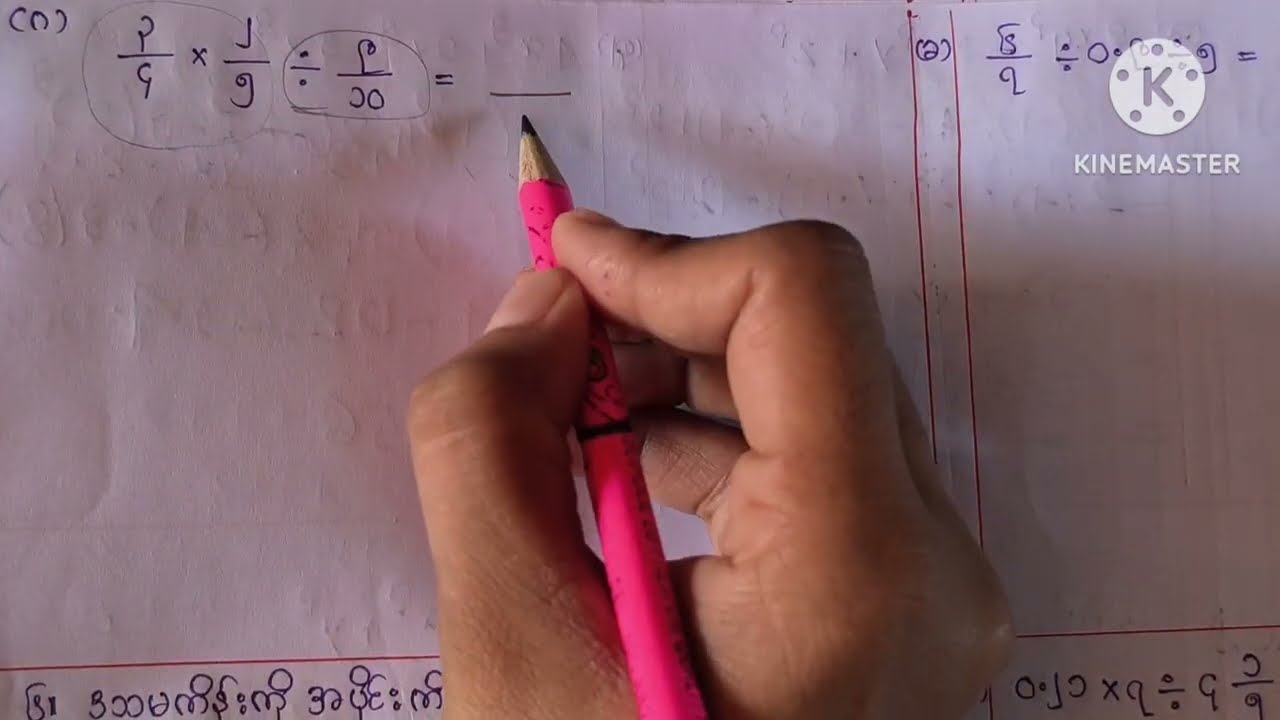 (ဂ) ၃/၄ × ၂/၅ ÷ ၉/၁၀ =
÷ ၅ =
KINEMASTER
၆။ ဒသမကိန်းကို အပိုင်း
၀.၂၁ × ၇ ÷ ၄ ၁/၅